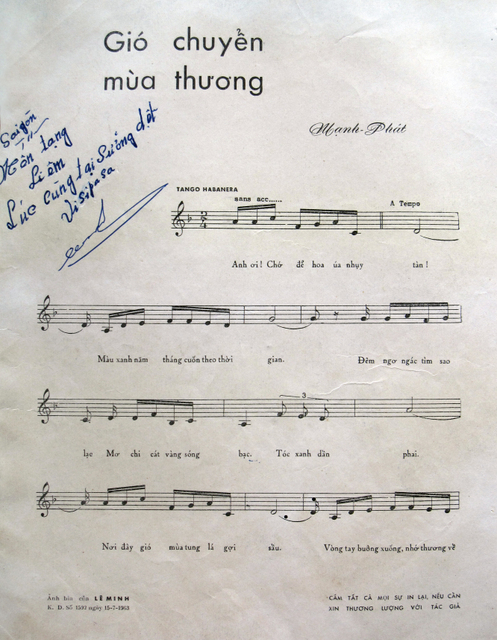 Gió chuyển
mùa thương
Mạnh-Phát
Saigon
Li êm
Lúc cùng tại Xưởng dệt
Visipasa
TANGO HABANERA
sans acc......
A Tempo
2
4
Anh ơi! Chớ để hoa úa nhụy tàn!
3
Màu xanh năm tháng cuốn theo thời gian. Đêm ngơ ngác tìm sao
lạc Mơ chi cát vàng sóng bạc. Tóc xanh dần phai.
Nơi đây gió mùa tung lá gợi sầu. Vòng tay buông xuống, nhớ thương về
Ấnh bản của LÊ MINH
K. D. Số 1591 ngày 15-7-1963
CẤM TẤT CẢ MỌI SỰ IN LẠI, NẾU CẦN
XIN THƯƠNG LƯỢNG VỚI TÁC GIẢ